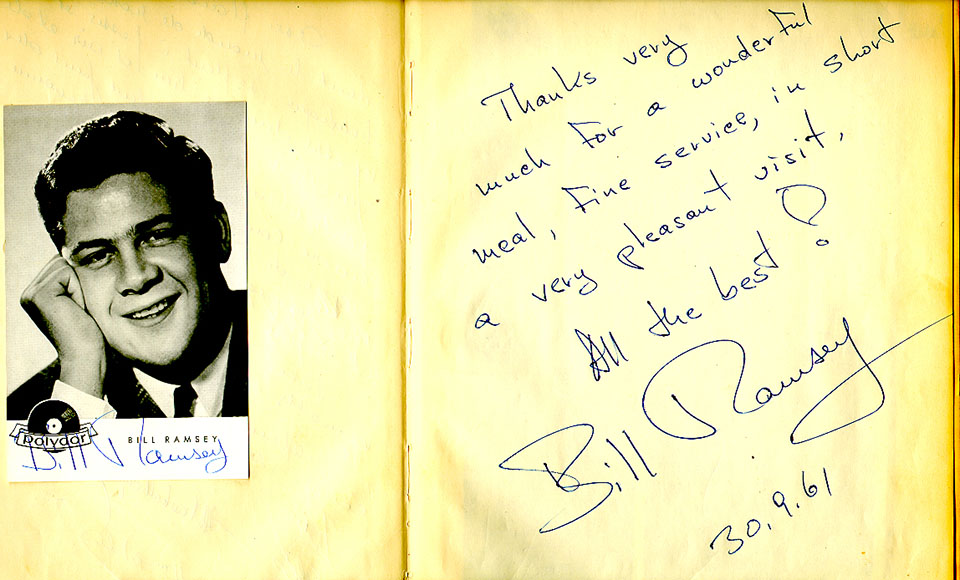 polydor
BILL RAMSEY
Bill Ramsey
Thanks very
much for a wonderful
meal, fine service, in short
a very pleasant visit,
All the best!
Bill Ramsey
30.9.61